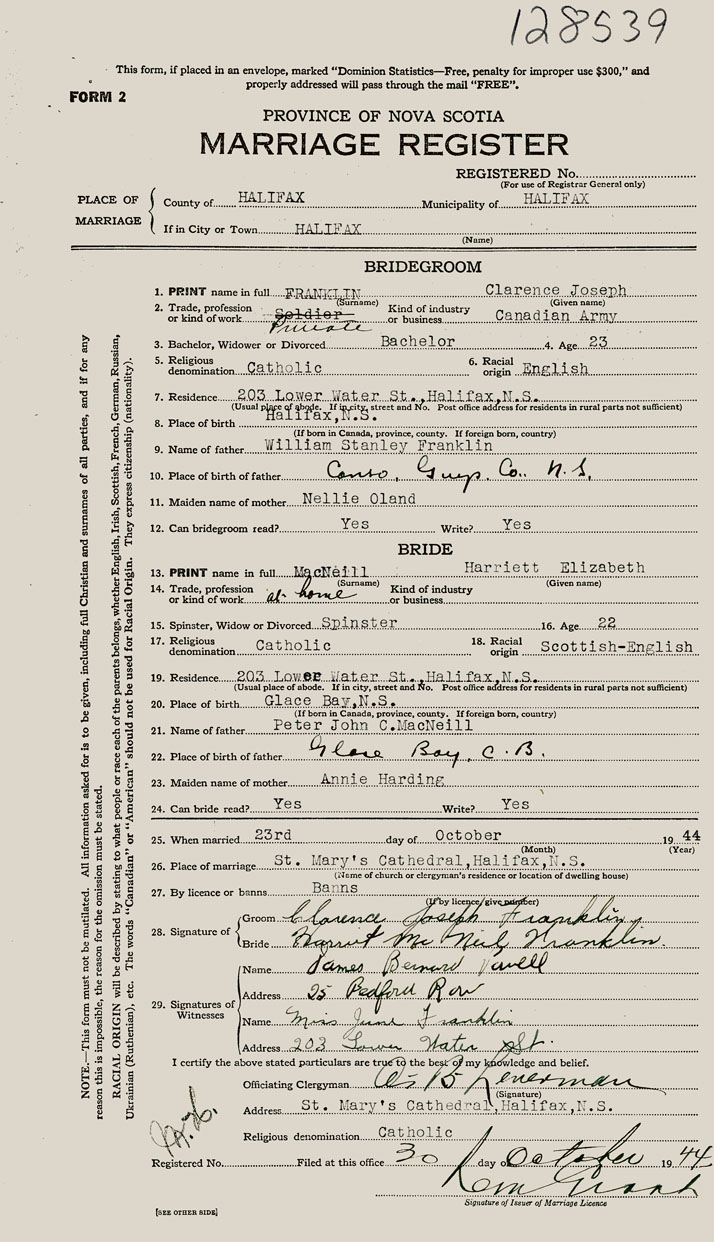 128539
This form, if placed in an envelope, marked "Dominion Statistics—Free, penalty for improper use $300," and
properly addressed will pass through the mail "FREE".
FORM 2
PROVINCE OF NOVA SCOTIA
MARRIAGE REGISTER
REGISTERED No.
(For use of Registrar General only)
PLACE OF MARRIAGE
County of HALIFAX Municipality of HALIFAX
If in City or Town HALIFAX
(Name)
BRIDEGROOM
1. PRINT name in full FRANKLIN Clarence Joseph
(Surname) (Given name)
2. Trade, profession or kind of work Soldier Private Kind of industry or business Canadian Army
3. Bachelor, Widower or Divorced Bachelor 4. Age 23
5. Religious denomination Catholic 6. Racial origin English
7. Residence 203 Lower Water St., Halifax, N.S.
(Usual place of abode. If in city, street and No. Post office address for residents in rural parts not sufficient)
8. Place of birth Halifax, N.S.
(If born in Canada, province, county. If foreign born, country)
9. Name of father William Stanley Franklin
10. Place of birth of father Canso, Guys. Co.. N.S.
11. Maiden name of mother Nellie Oland
12. Can bridegroom read? Yes Write? Yes
BRIDE
13. PRINT name in full MacNeill Harriett Elizabeth
(Surname) (Given name)
14. Trade, profession or kind of work at home Kind of industry or business
15. Spinster, Widow or Divorced Spinster 16. Age 22
17. Religious denomination Catholic 18. Racial origin Scottish-English
19. Residence 203 Lower Water St., Halifax, N.S.
(Usual place of abode. If in city, street and No. Post office address for residents in rural parts not sufficient)
20. Place of birth Glace Bay, N.S.
(If born in Canada, province, county. If foreign born, country)
21. Name of father Peter John C. MacNeill
22. Place of birth of father Glace Bay, C.B.
23. Maiden name of mother Annie Harding
24. Can bride read? Yes Write? Yes
25. When married 23rd day of October 1944
(Month) (Year)
26. Place of marriage St. Mary's Cathedral, Halifax, N.S.
(Name of church or clergyman's residence or location of dwelling house)
27. By licence or banns Banns
(If by licence give number)
28. Signature of
Groom Clarence Joseph Franklin
Bride Harriet Mc Neil Franklin.
29. Signatures of Witnesses
Name James Bernard
Address 25 Bedford Row
Name Miss June Franklin
Address 203 Lower Water St.
I certify the above stated particulars are true to the best of my knowledge and belief.
Officiating Clergyman
(Signature)
Address St. Mary's Cathedral, Halifax, N.S.
Religious denomination Catholic
Registered No. Filed at this office 30 day of October 1944
Signature of Issuer of Marriage Licence
[SEE OTHER SIDE]
NOTE.—This form must not be mutilated. All information asked for is to be given, including full Christian and surnames of all parties, and if for any
reason this is impossible, the reason for the omission must be stated.
RACIAL ORIGIN will be described by stating to what people or race each of the parents belongs, whether English, Irish, Scottish, French, German, Russian,
Ukrainian (Ruthenian), etc. The words "Canadian" or "American" should not be used for Racial Origin. They express citizenship (nationality).